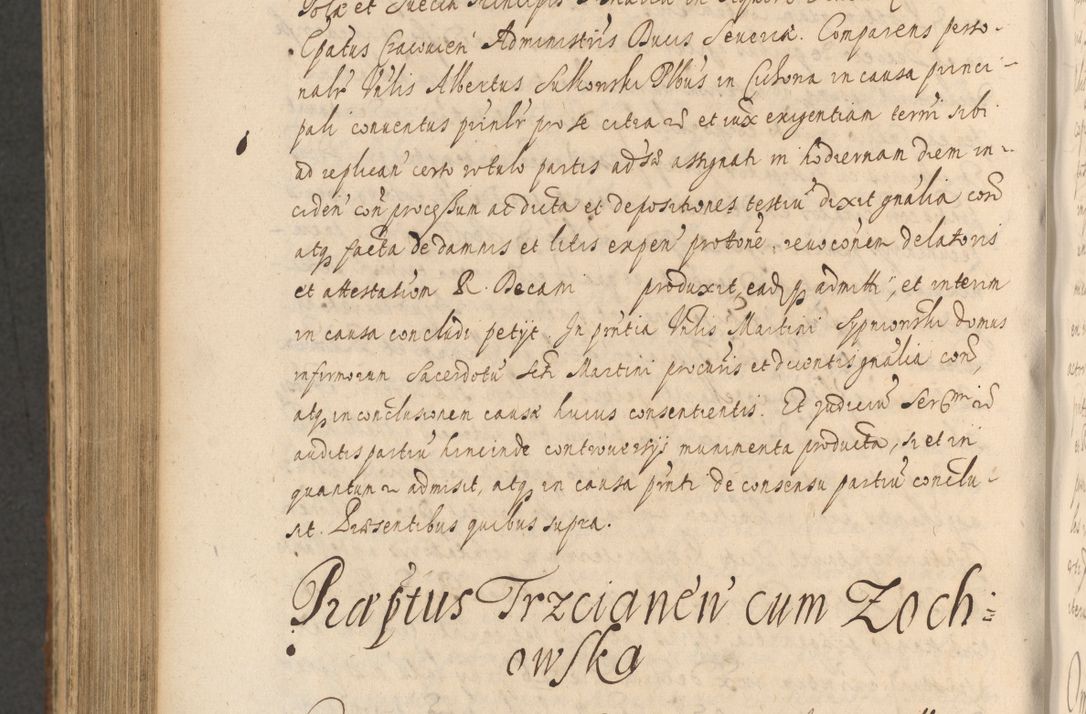 Polæ et Sueciæ Principis
Epatus Cracovien̄ Administris Ducis Severiæ. Comparens perso-
nalr Vnlis Albertus Sulkonski Plbus in Cichona in causa princi-
pali conventus prinlr pro se citra et iux exigentiam termi sibi
ad replican̄ certo rotulo partis adsæ assignati in hodiernam diem in-
ciden̄ con processum ac dicta et depositiones testiū dixit gnalia con
atq facta de damnis et litis expen̄ protone, revoconem delatoris
et attestation R. Decani produxit, eadq admitti, et interim
in causa concludi petijt. In pntia Vnlis Martini Sypnionski domus
infirmorum Sacerdotū Sti Martini procuris et dicentis gnalia con,
atq in conclusionem causæ huius consentientis. Et judiciū Sermi
auditis partiū hincinde controversijs munimenta producta, si et in
quantum admisit, atq in causa pnti de consensu partiū conclu-
sit. Præsentibus quibus supra.
Præptus Trzcianen̄ cum Zoch=
owska